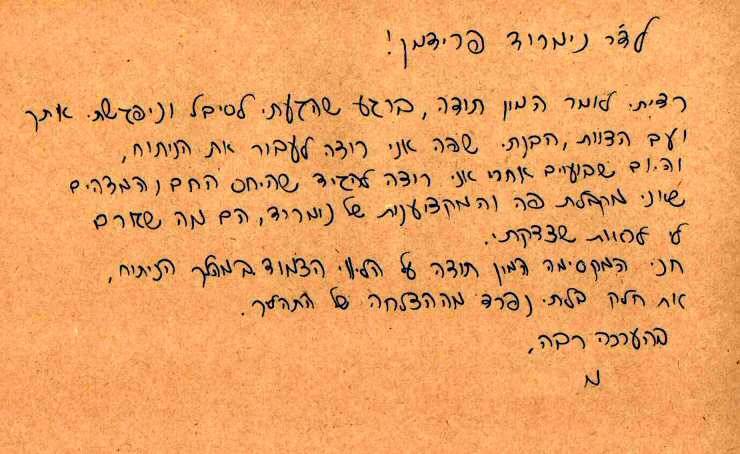 לד"ר נימרוד פרידמן!
רציתי לומר המון תודה, ברגע שהגעתי לסיבל וניפגשתי אתך
ועם הצוות, הבנתי שפה אני רוצה לעבור את הניתוח,
והיום שבועיים אחרי אני רוצה להגיד שהיחס החם והמדהים
שאני מקבלת פה והמקצוענות של נימרוד, הם מה שגרם
לי לראות שצדקתי.
חני המקסימה המון תודה על הליווי הצמוד במהלך הניתוח,
את חלק בלתי נפרד מההצלחה של התהליך.
בהערכה רבה,
מ